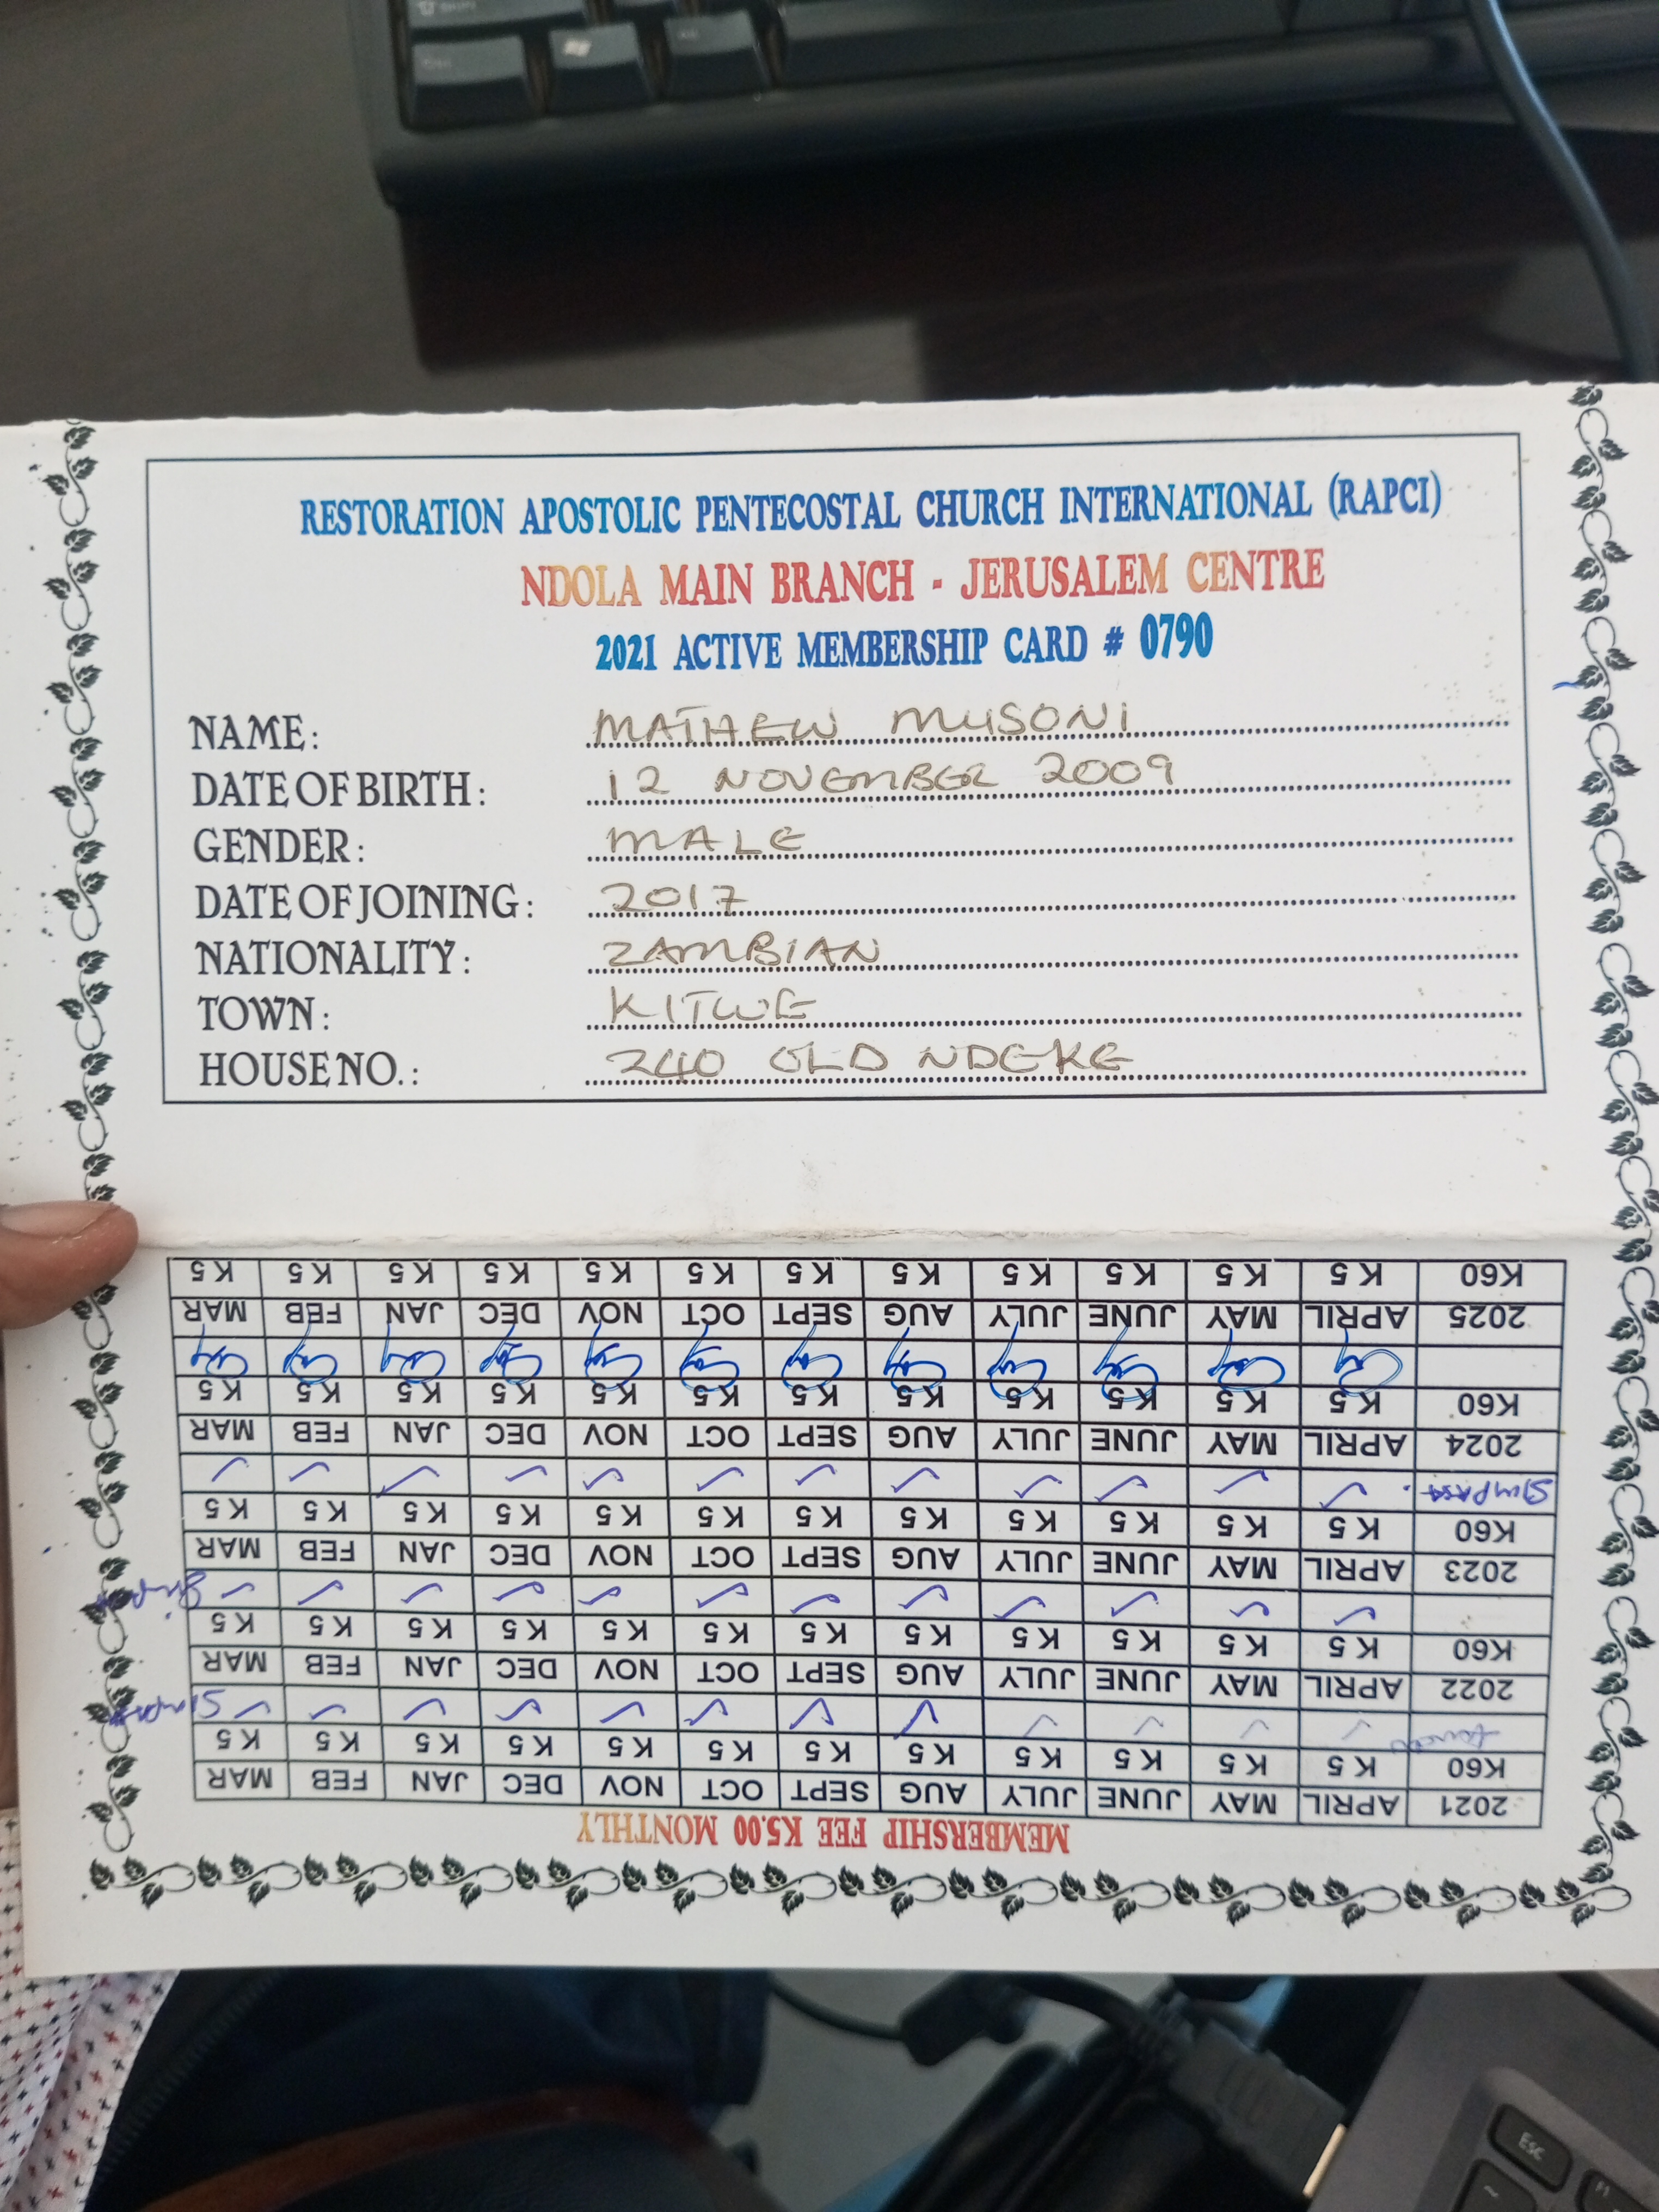 RESTORATION APOSTOLIC PENTECOSTAL CHURCH INTERNATIONAL (RAPCI)
NDOLA MAIN BRANCH - JERUSALEM CENTRE
2021 ACTIVE MEMBERSHIP CARD # 0790
NAME: MATHEW MUSONI
DATE OF BIRTH: 12 NOVEMBER 2009
GENDER: MALE
DATE OF JOINING: 2017
NATIONALITY: ZAMBIAN
TOWN: KITWE
HOUSE NO.: 240 OLD NDEKE
MEMBERSHIP FEE K5.00 MONTHLY
2021 APRIL MAY JUNE JULY AUG SEPT OCT NOV DEC JAN FEB MAR
K60 K5 K5 K5 K5 K5 K5 K5 K5 K5 K5 K5 K5
2022 APRIL MAY JUNE JULY AUG SEPT OCT NOV DEC JAN FEB MAR
K60 K5 K5 K5 K5 K5 K5 K5 K5 K5 K5 K5 K5
2023 APRIL MAY JUNE JULY AUG SEPT OCT NOV DEC JAN FEB MAR
K60 K5 K5 K5 K5 K5 K5 K5 K5 K5 K5 K5 K5
SIMPASA.
2024 APRIL MAY JUNE JULY AUG SEPT OCT NOV DEC JAN FEB MAR
K60 K5 K5 K5 K5 K5 K5 K5 K5 K5 K5 K5 K5
2025 APRIL MAY JUNE JULY AUG SEPT OCT NOV DEC JAN FEB MAR
K60 K5 K5 K5 K5 K5 K5 K5 K5 K5 K5 K5 K5
Esc